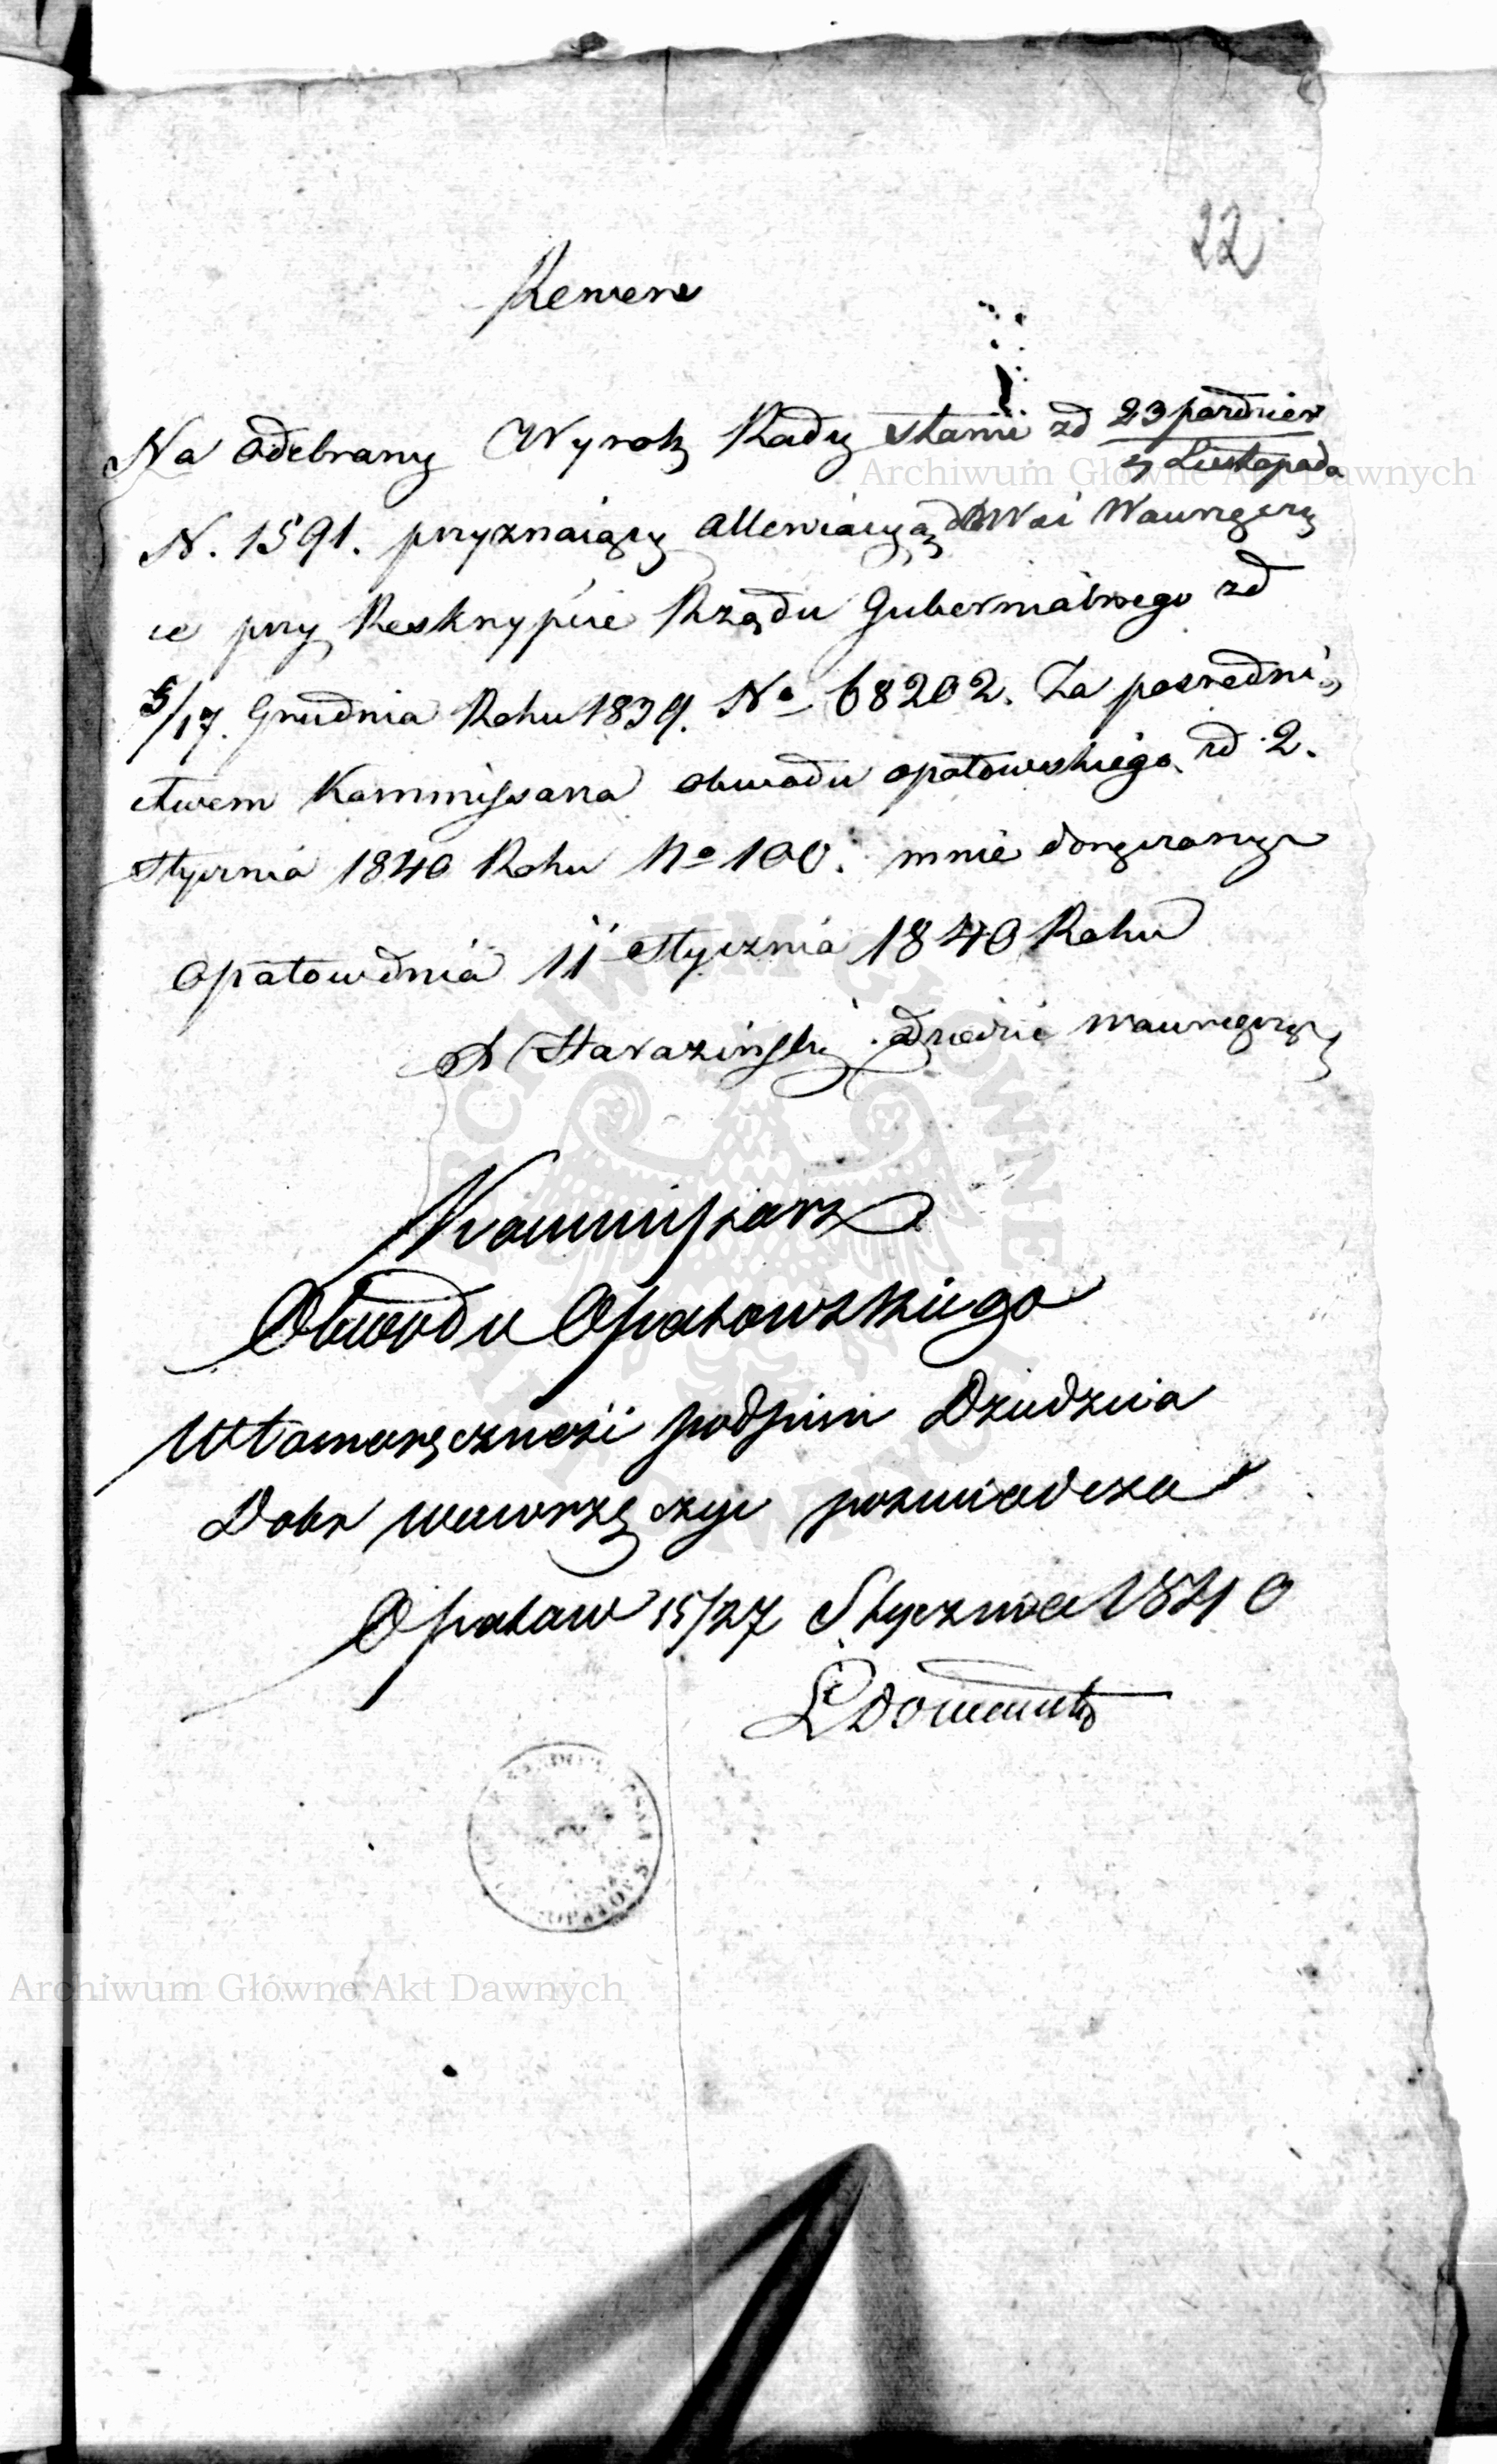 22
Rewers
Na odebrany Wyrok Rady Stanu zd 23 pazdzier
Listopada
N. 1591. przyznaiący allewiacyą dla Wsi Wawrzęczy
ce przy Reskrypcie Rządu Gubernialnego zd
5/17. Grudnia Roku 1839. No 68202. Za posredni
ctwem Kommissarza obwodu opatowskiego zd 2.
Stycznia 1840 Roku No 100. mnie doręczony
Opatow dnia 11 Stycznia 1840 Roku
Dziedzic
Kommissarz
Obwodu Opatowskiego
Własnoręczności podpisu Dziedzica
Dobr Wawrzęczyc poswiadcza
Opatow 15/27 Stycznia 1840
Archiwum Główne Akt Dawnych
Archiwum Główne Akt Dawnych
ARCHIWUM GŁÓWNE AKT DAWNYCH